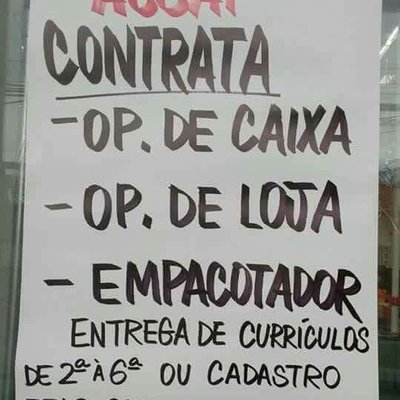 CONTRATA
- OP. DE CAIXA
- OP. DE LOJA
- EMPACOTADOR
ENTREGA DE CURRÍCULOS
DE 2ª À 6ª OU CADASTRO